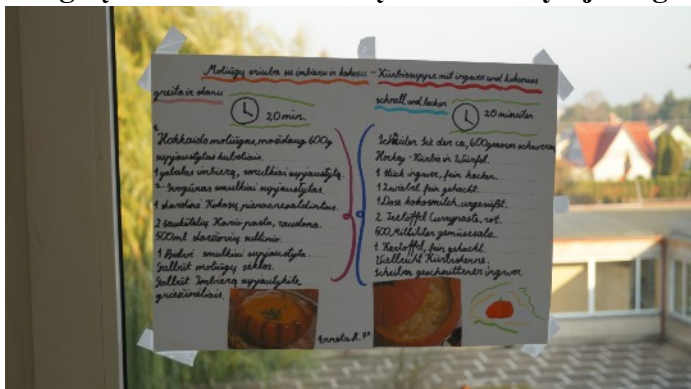 Moliūgų sriuba su imbieru ir kokosu – Kürbissuppe mit ingwer und kokonuss
greita ir skanu
20 min.
Hokkaido moliūgas, maždaug 600g
supjaustytas kubeliais.
1 gabalas imbiero, smulkiai supjaustytą.
smulkiai supjaustytas.
1 skardinė Kokosų pienas, nesaldintas.
2 šaukštelių Kario pasta, raudona.
500ml daržovių sultinio.
1 Bulvė smulkiai supjaustyta
Galbūt moliūgų sėklos.
Galbūt Imbierą supjaustykite
griežinėliais.
schnell und lecker
20 minuten
Schneiden Sie den ca. 600 schweren
Hockay-Kürbis in Würfel.
1 Stück ingwer, fein hacken.
1 Zwiebel fein gehackt.
1 Dose kokosmilch, ungesüßt.
2 Currypaste, rot.
500 Milliliter
1 Kartoffel, fein gehackt.
Vielleicht Kürbiskerne.
Scheiben geschnittener ingwer.